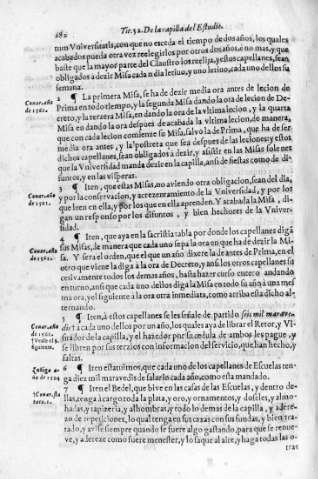 282 Tit. 52. De la capilla del Estudio.
con que no exceda el tiempo de dos años, los quales
acabados pueda otra vez reelegirlos por otros dos años, o no mas, y que
baste que la mayor parte del Claustro los reelija, y estos capellanes, sean
obligados a dezir Misa cada dia letiuo, y uno letino, cada uno dellos su
semana.
2 ¶ La primera Misa, se ha de dezir media ora antes de lecion de
Prima en todo tiempo, y la segunda Misa dando la ora de lecion de De-
creto, y la tercera Misa, en dando la ora de la vltima lecion, y la quarta
Misa en dando la ora despues de acabada la vltima lecion, de manera,
que con cada lecion comiense su Misa, saluo la de Prima, que ha de ser
media ora antes, y la postrera que sea despues de las leciones, y estos
dichos capellanes, sean obligados a dezir, y asistir en las Misas solenes
que la Vniuersidad manda dezir en la capilla, ansi de fiestas como de di-
funtos, y en las visperas.
3 ¶ Iten, que estas Misas, no auiendo otra obligacion, sean del dia,
y por la conseruacion, y acrezentamiento de la Vniuersidad, y por los
que leen en ella, y por los que en ella aprenden. Y acabada la Misa, di-
gan un responso por los difuntos, y bien hechores de la Vniuer-
sidad.
4 ¶ Iten, que aya en la sacristia tabla por donde los capellanes digã
sus Misas, de manera que cada uno sepa la ora en que ha de dezir la Mi-
sa. Y sera el orden, que el que un año dixere la de antes de Prima, en el
otro que viene la diga a la ora de Decreto, y ansi los otros capellanes su
cesiuamente todos los demas años, hasta hazer curso entero andando
en turno, ansi que cada uno dellos diga la Misa en todo su año a una mes
ma ora, y el siguiente a la ora otra inmediata, como arriba esta dicho al-
ternando.
5 ¶ Iten, a estos capellanes se les señale de partido seis mil maraue-
dis a cada uno dellos por un año, los quales aya de librar el Retor, y Vi-
sitador de la capilla, y el hazedor por su cedula de ambos les pague, y
se libren por sus tercios con informacion del seruicio, que han hecho, y
faltas.
6 ¶ Iten estatuimos, que cada uno de los capellanes de Escuelas ten-
ga diez mil marauedis de salario cada año, como esta mandado.
¶ Iten el Bedel, que biue en las casas de las Escuelas, y dentro de-
llas, tenga a cargo toda la plata, y oro, y ornamentos, y doseles, y almo-
hadas, y tapizeria, y alhombras, y todo lo demas de la capilla, y adere-
zo de repeticiones, lo qual tenga en sus casas con sus fundas, y bien tra-
tado, y avise siempre quando se fuere algo gastando, para que se renue-
ve, y aderece como fuere menester, y lo saque al aire, y haga todas las o-